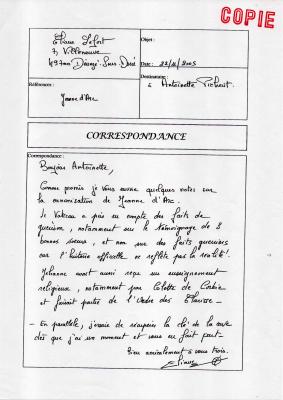 COPIE
Eliane Lefort
7, Villeneuve
Objet :
Date : 22/11/2005
Destinataire :
à Antoinette Pichaut
Références :
Jeanne d'Arc
CORRESPONDANCE
Correspondance :
Bonjour Antoinette,
Comme promis je vous envoie quelques notes sur
la canonisation de Jeanne d'Arc.
le Vatican a pris en compte des faits de
guérison, notamment sur le témoignage de 3
bonnes soeurs, et non sur des faits guerriers
car l'histoire officielle ne reflète pas la réalité !
Jehanne avait aussi reçu un enseignement
religieux, notamment par Colette de Corbie
et faisait partie de l'ordre des
- En parallèle, j'essaie de récupérer la clé de la cave
dès que j'ai un moment et vous en fait part -
bien amicalement à vous trois.
Eliane